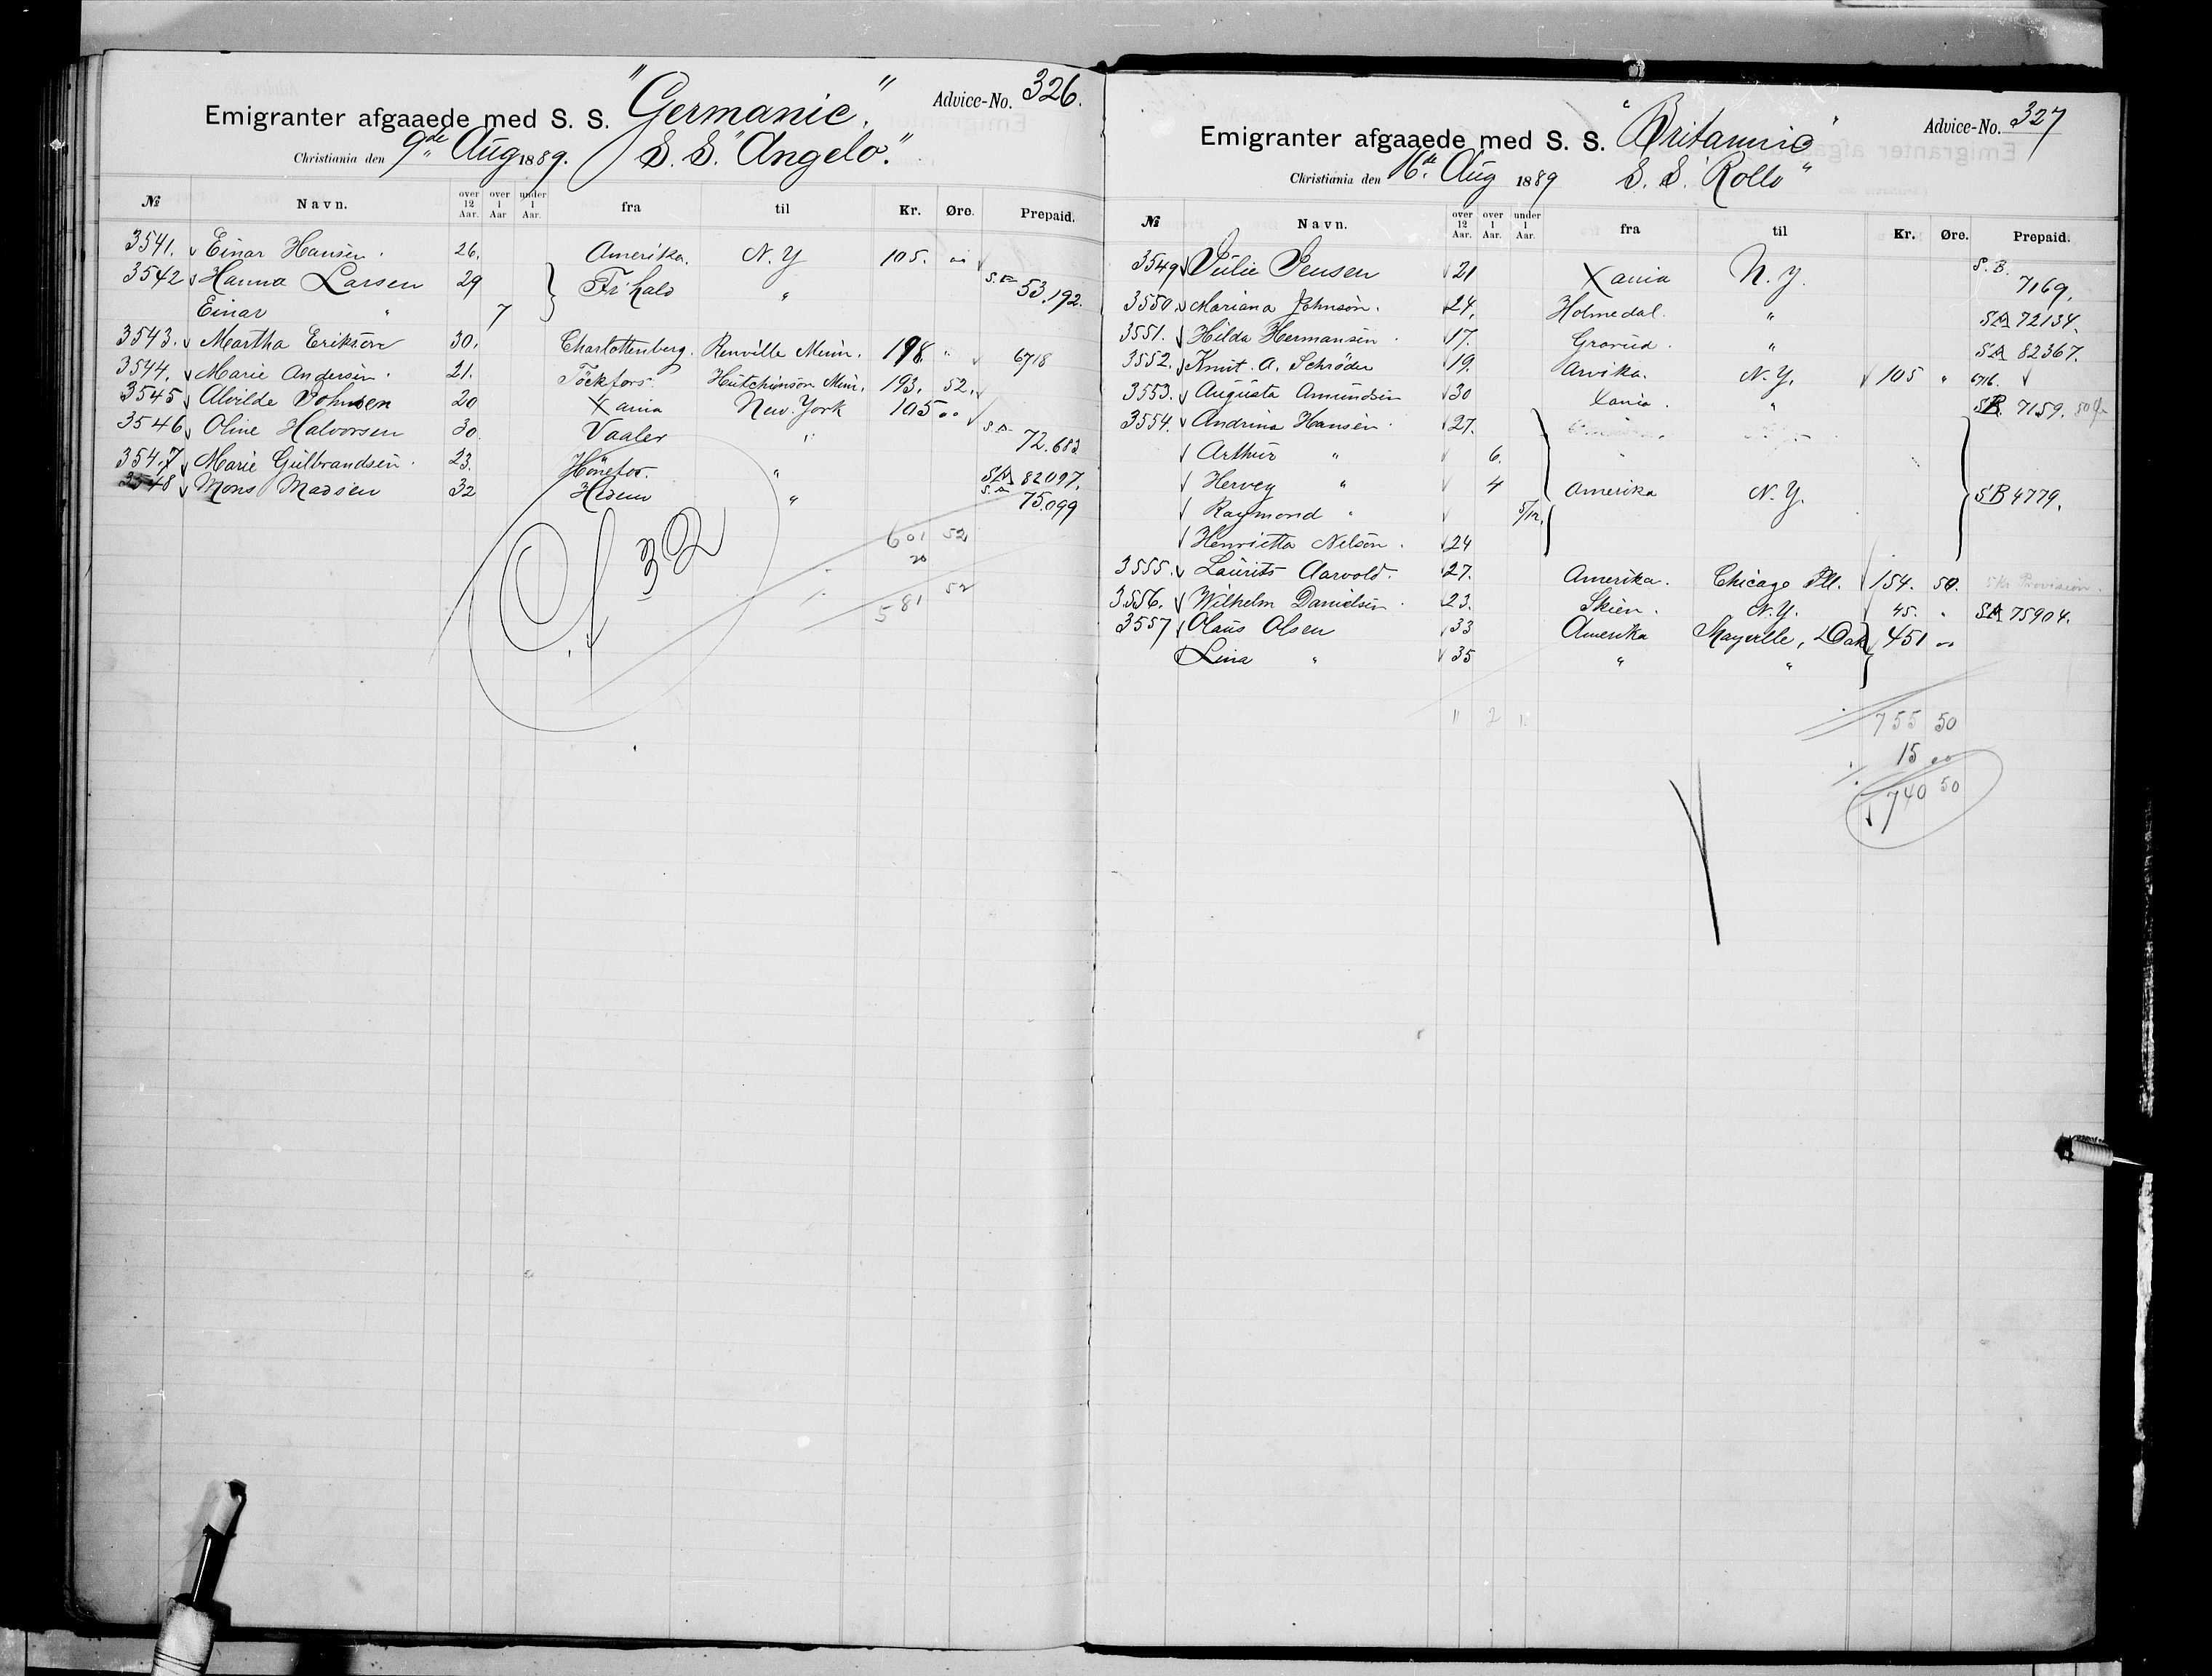 Emigranter afgaaede med S. S. "Germanic". Advice-No. 326.
Christiania den 9de Aug 1889. S. S. "Angelo".
№ Navn. over 12 Aar. over 1 Aar under 1 Aar. fra til Kr. Øre. Prepaid.
3541. Einar Hansen. 26. Amerika. N. Y 105. "
3542 Hanna Larsen 29 Fr'hald " 53.192.
Einar " 7
3543. Martha Erikson 30. Charlottenberg. Renville Minn. 198 " 6718
3544. Marie Andersen. 21. Töckfors. Hutchinson Minn. 193. 52.
3545 Alvilde Johnsen 20 Xania New. York 105 "
3546 Oline Halvorsen 30. Vaaler " 72.683
3547 Marie Gulbrandsen. 23. Hönefos. " SA 82097.
3548 Mons Madsen 32 " 75.099
601 52
20
581 52
32
Emigranter afgaaede med S. S. "Britannic" Advice-No. 327
Christiania den 16de Aug 1889 S. S. "Rollo"
№ Navn. over 12 Aar. over 1 Aar. under 1 Aar. fra til Kr. Øre. Prepaid.
3549 Julie Jensen 21 Xania N. Y. S. B. 7169.
3550 Mariana Johnson. 24. Holmedal. " SA 72134.
3551. Hilda Hermansen. 17. Grorud. " SA 82367.
3552. Knut. A. Schrøder 19. Arvika. N. Y. 105 " 6716.
3553. Augusta Amundsen 30 Xania. " SB. 7159.
3554. Andrina Hansen. 27.
Arthur " 6.
Hervey " 4 Amerika N. Y. SB 4779.
Raymond " 5/12.
Henrietta Nelson. 24
3555. Laurits Aarvold. 27. Amerika. Chicago Ill. 154. 50. Provision.
3556. Wilhelm Danielsen. 23. Skien. N. Y. 45. " SA 75904.
3557 Olaus Olsen 33 Amerika Mayville, Dak 451 "
Lina " 35 " "
11 2 1. 755 50
15 00
740 50